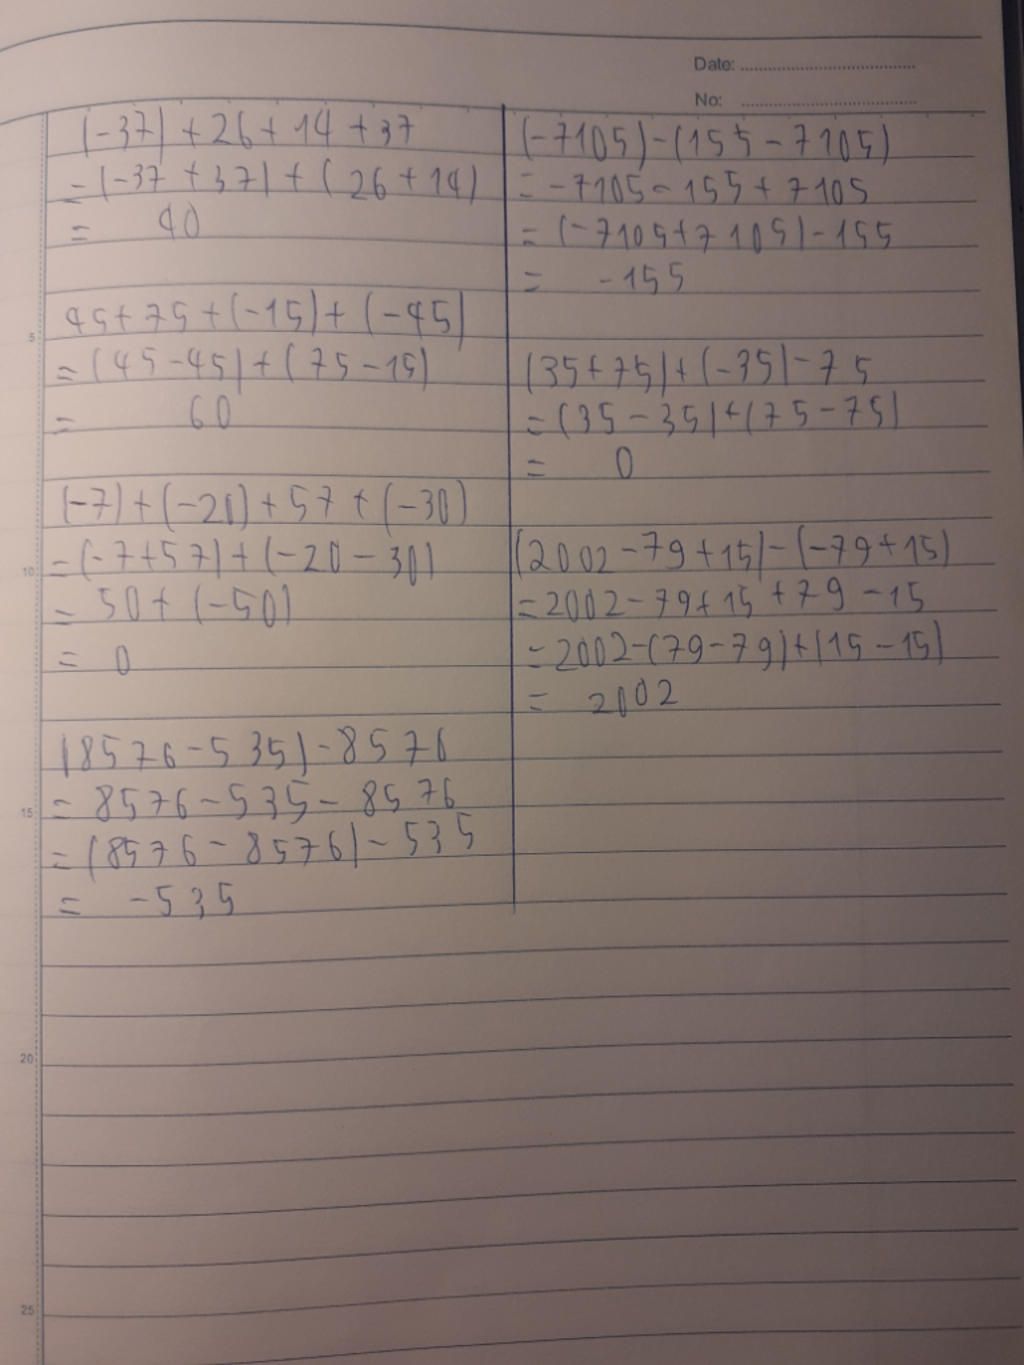 Date:
No:
(-37) + 26 + 14 + 37
= (-37 + 37) + (26 + 14)
= 40
45 + 75 + (-15) + (-45)
= (45 - 45) + (75 - 15)
= 60
(-7) + (-20) + 57 + (-30)
= (-7 + 57) + (-20 - 30)
= 50 + (-50)
= 0
(8576 - 535) - 8576
= 8576 - 535 - 8576
= (8576 - 8576) - 535
= -535
(-7105) - (155 - 7105)
= -7105 - 155 + 7105
= (-7105 + 7105) - 155
= -155
(35 + 75) + (-35) - 75
= (35 - 35) + (75 - 75)
= 0
(2002 - 79 + 15) - (-79 + 15)
= 2002 - 79 + 15 + 79 - 15
= 2002 - (79 - 79) + (15 - 15)
= 2002
5
10
15
20
25